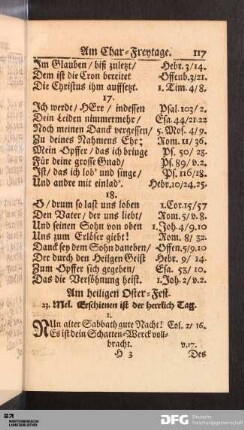 Am Char-Freytage. 117
Im Glauben / biß zuletzt / Hebr. 3/14.
Dem ist die Cron bereitet Offenb. 3/21.
Die Christus ihm auffsetzt. 1. Tim. 4/8.
17.
Ich werde / HErr / indessen Psal. 103/2.
Dein Leiden nimmermehr / Esa. 44/21.22
Noch meinen Danck vergessen / 5. Mos. 4/9.
Zu deines Nahmens Ehr; Rom. 11/36.
Mein Opffer / das ich bringe Ps. 50/23.
Für deine grosse Gnad / Ps. 89/v.2.
Ist / das ich lob' und singe / Ps. 116/18.
Und andre mit einlad'. Hebr. 10/24.25.
18.
O / drum so last uns loben 1. Cor. 15/57
Den Vater / der uns liebt / Rom. 5/v.8.
Und seinen Sohn von oben 1. Joh. 4/9.10
Uns zum Erlöser giebt! Rom. 8/32.
Danck sey dem Sohn daneben / Offen. 5/9.10
Der durch den Heilgen Geist Hebr. 9/14.
Zum Opffer sich gegeben / Esa. 53/10.
Das die Versöhnung heist. 1. Joh. 2/v.2.
Am heiligen Oster-Fest.
23. Mel. Erschienen ist der herrlich Tag.
1.
NUn alter Sabbath gute Nacht! Col. 2/16.
Es ist dein Schatten-Werck voll-
bracht. v. 17.
H 3 Des
DFG Deutsche
Forschungsgemeinschaft